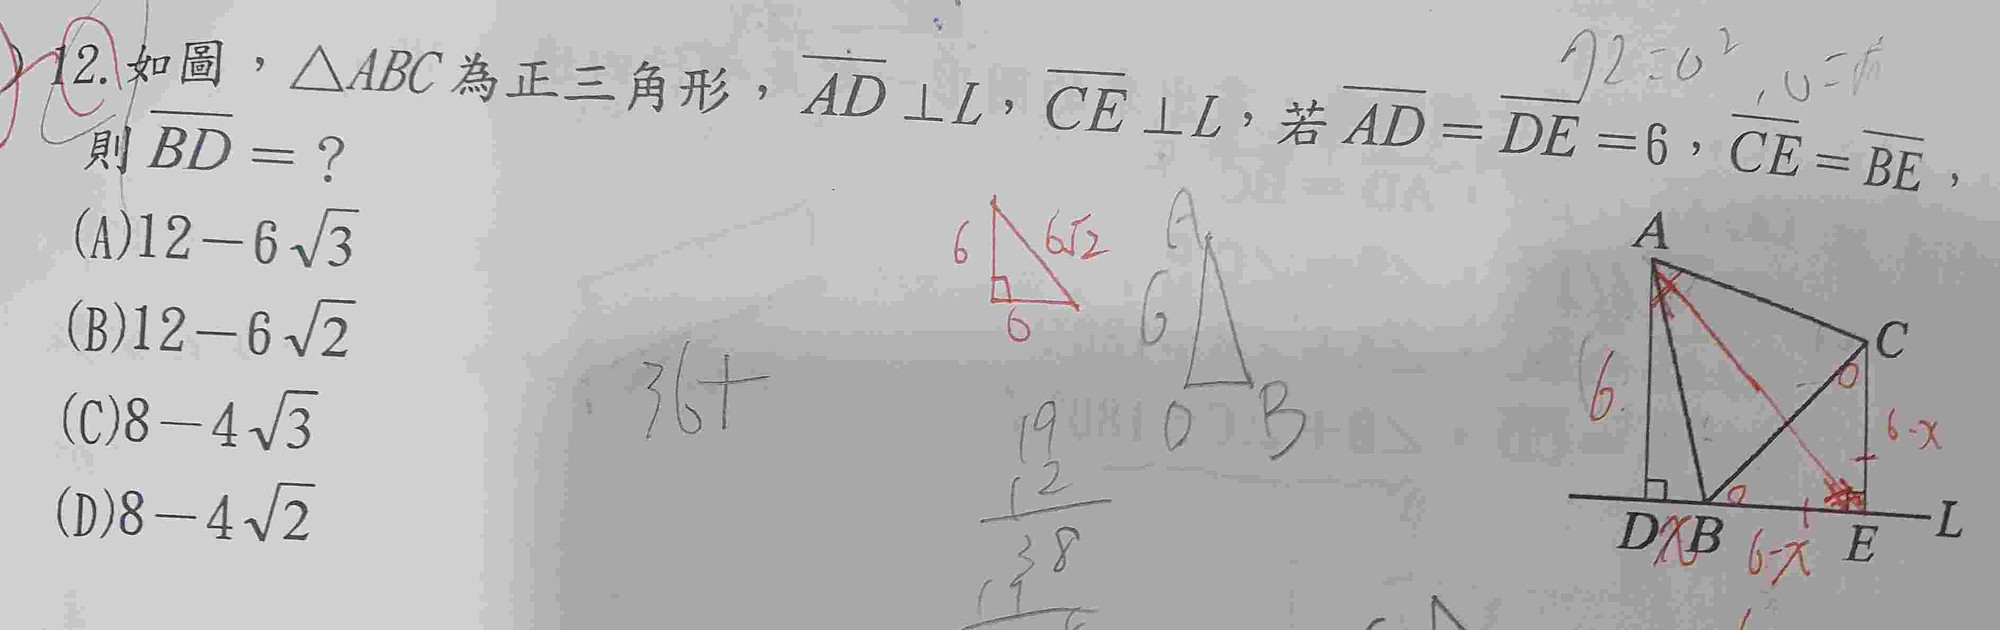 12. 如圖，△ABC為正三角形，AD⊥L，CE⊥L，若AD=DE=6，CE=BE，
則BD=？
(A)12－6√3
(B)12－6√2
(C)8－4√3
(D)8－4√2
72=
6
6√2
6
A
6
D
B
36+
19
12
38
19
A
C
6
6-x
D x B
6-x
E
L